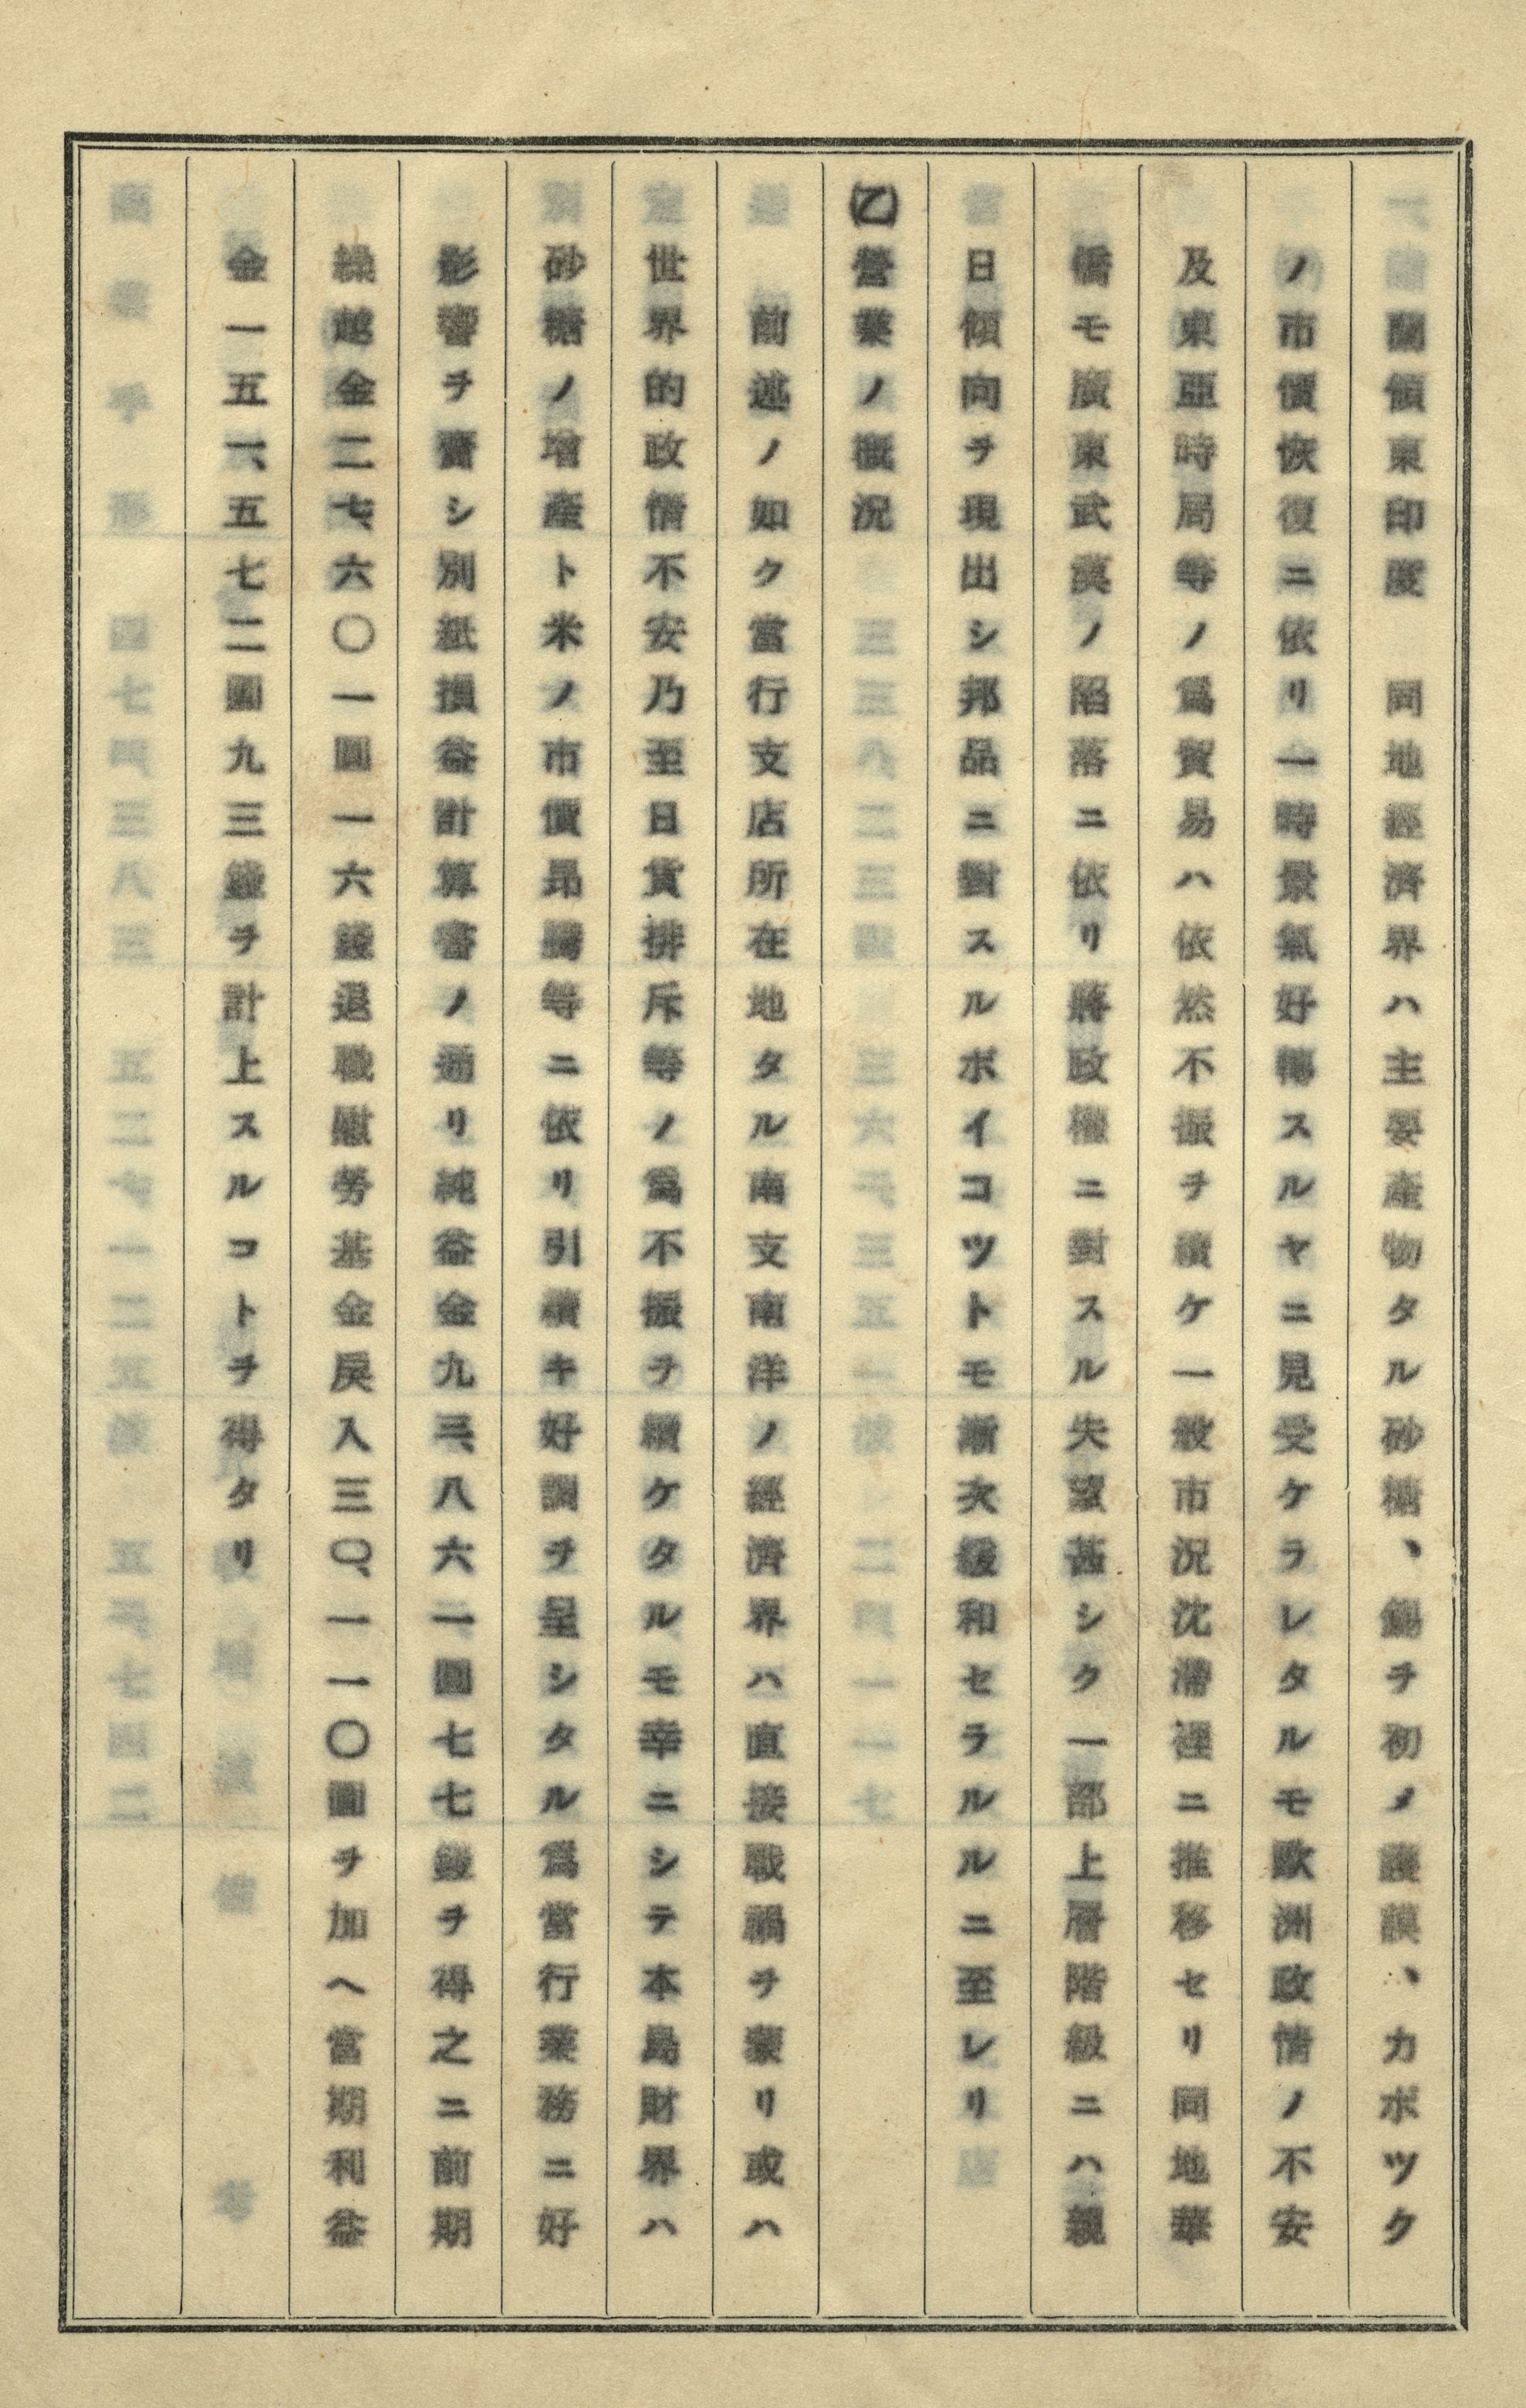 蘭領東印度　同地經濟界ハ主要産物タル砂糖、錫ヲ初メ護謨、カポツク
ノ市價恢復ニ依リ一時景氣好轉スルヤニ見受ケラレタルモ歐洲政情ノ不安
及東亞時局等ノ爲貿易ハ依然不振ヲ續ケ一般市況沈滯裡ニ推移セリ同地華
僑モ廣東武漢ノ陷落ニ依リ蔣政權ニ對スル失望甚シク一部上層階級ニハ親
日傾向ヲ現出シ邦品ニ對スルボイコツトモ漸次緩和セラルルニ至レリ
(乙)營業ノ概況
前述ノ如ク當行支店所在地タル南支南洋ノ經濟界ハ直接戰禍ヲ蒙リ或ハ
世界的政情不安乃至日貨排斥等ノ爲不振ヲ續ケタルモ幸ニシテ本島財界ハ
砂糖ノ增産ト米ノ市價昂騰等ニ依リ引續キ好調ヲ呈シタル爲當行業務ニ好
影響ヲ齎シ別紙損益計算書ノ通リ純益金九三、八六一圓七七錢ヲ得之ニ前期
繰越金二七、六〇一圓一六錢退職慰勞基金戾入三〇、一一〇圓ヲ加ヘ當期利益
金一五一、五七二圓九三錢ヲ計上スルコトヲ得タリ